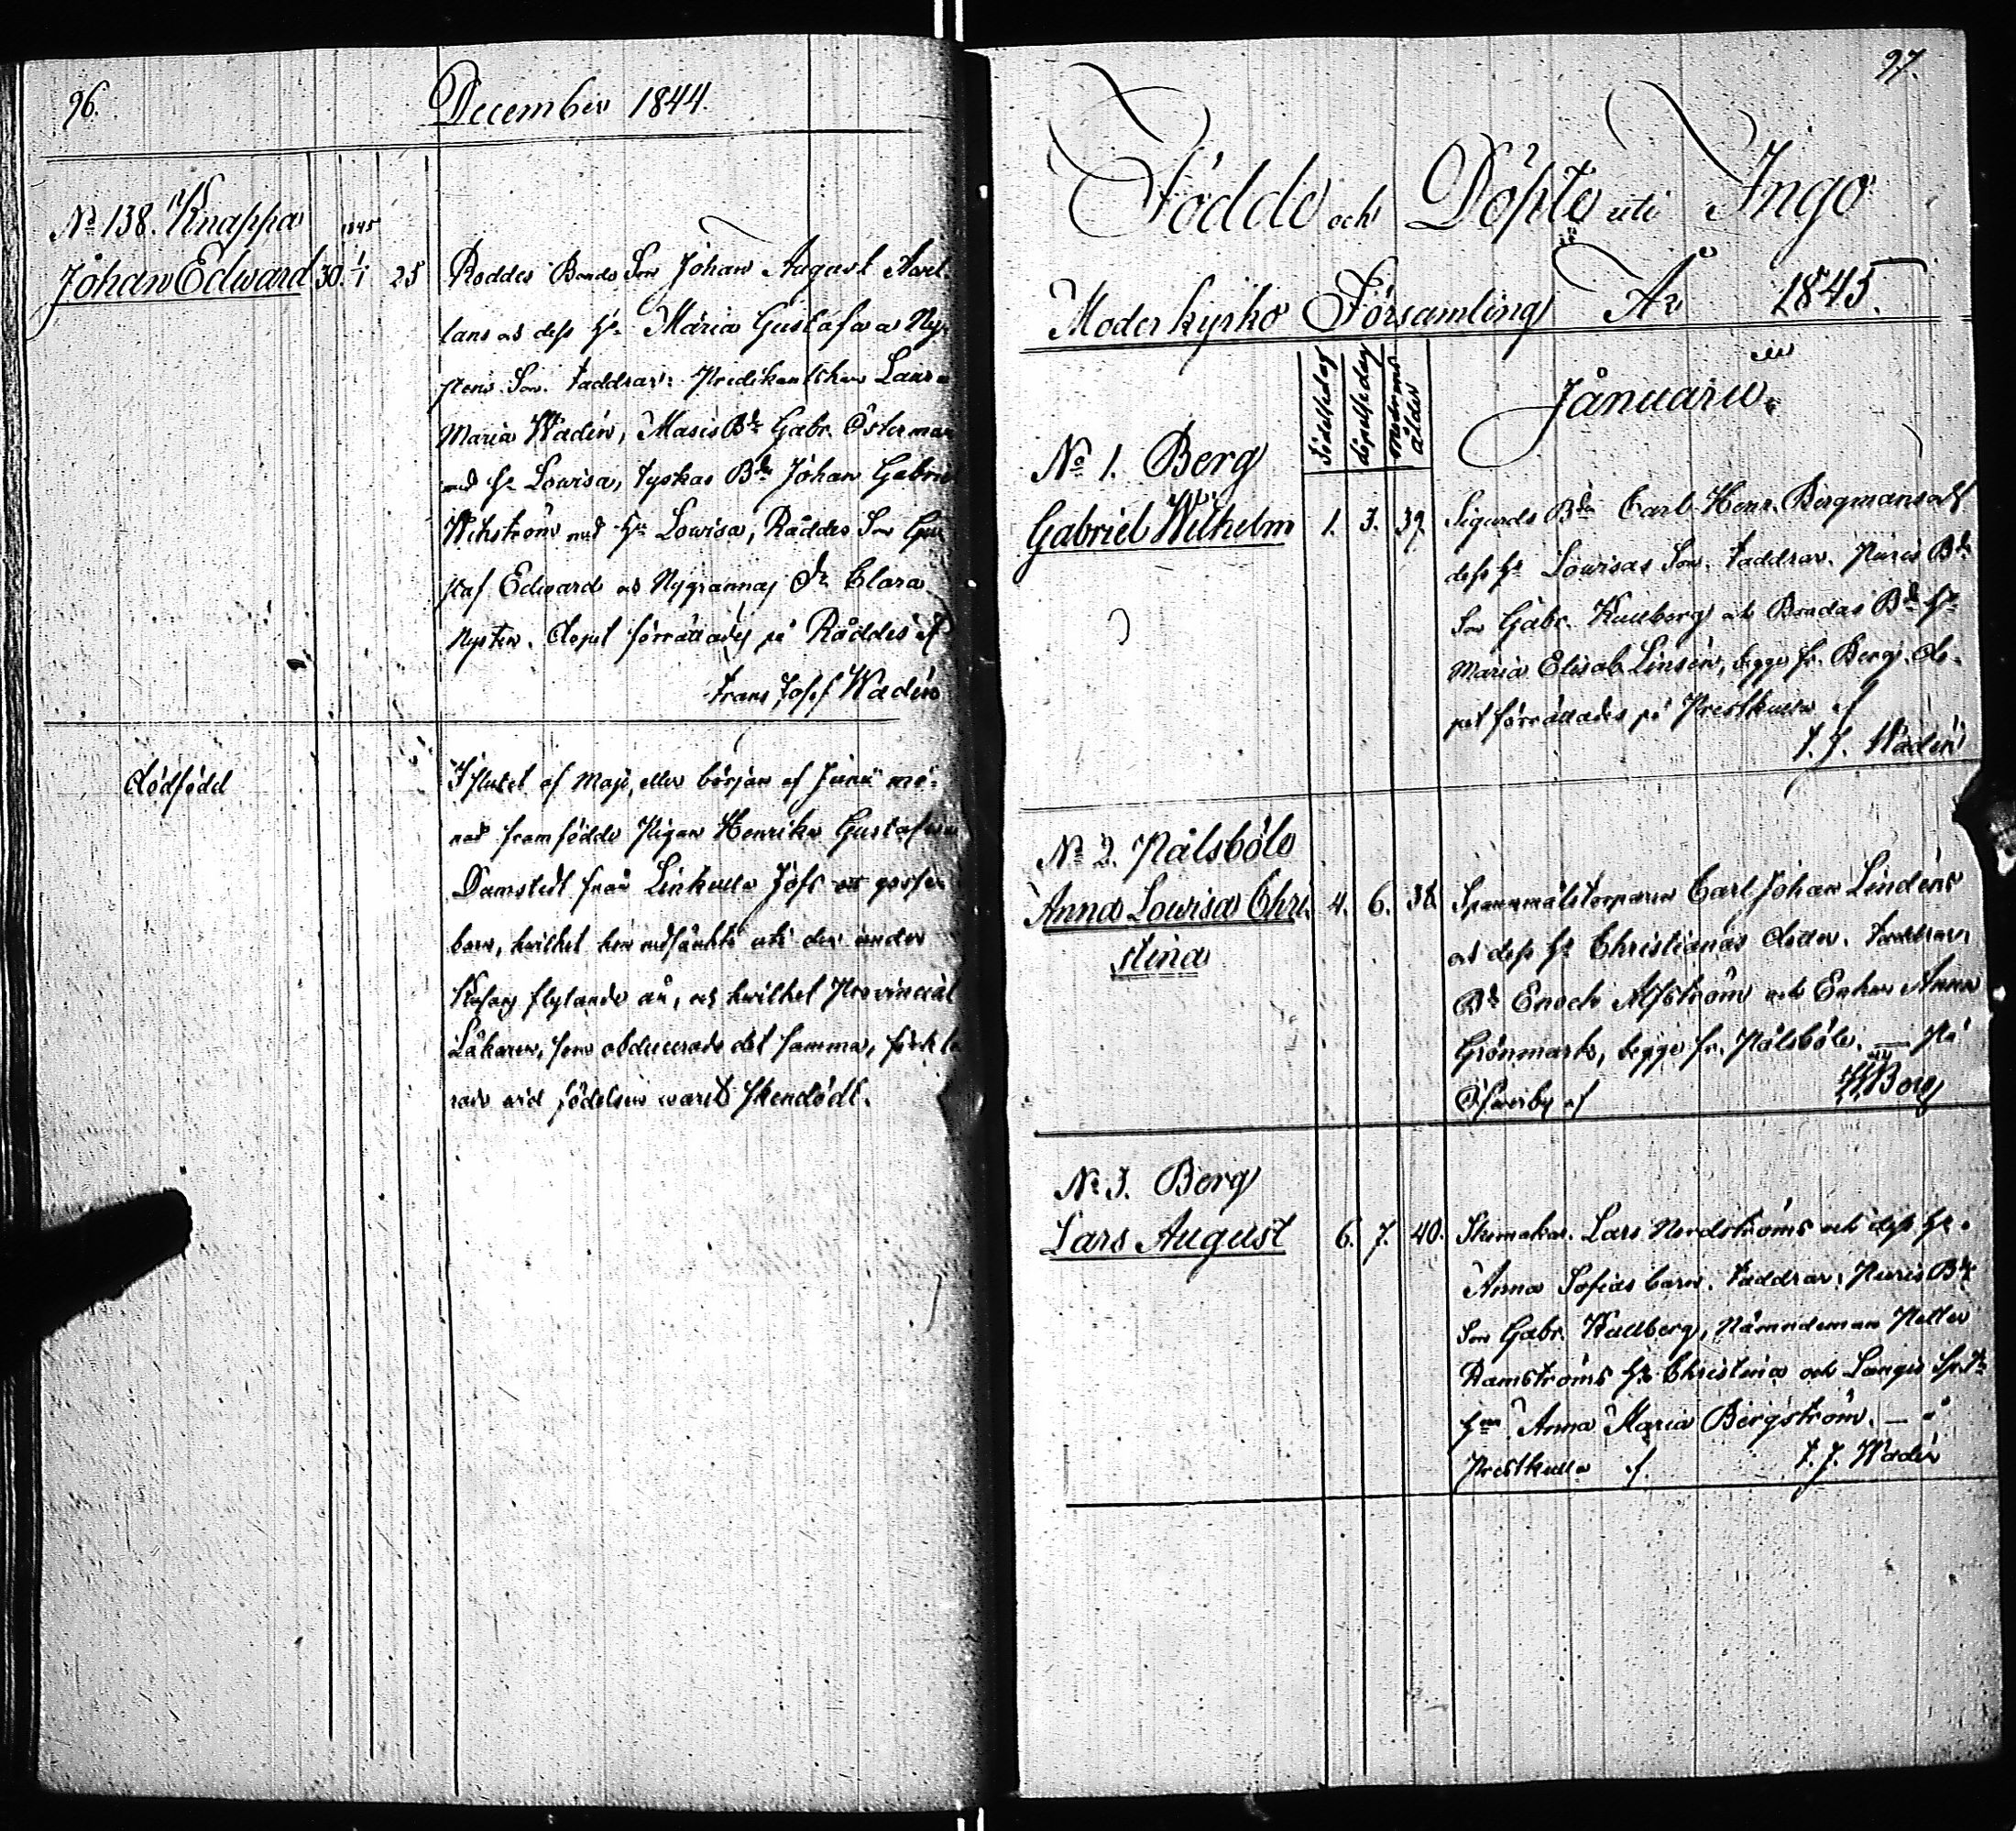 96.
December 1844.
No 138. Knappa
1845
Johan Edward 30. 1/1 25
Roddes Bonde Son Johan August Axel-
lans och dess Hu Maria Gustafva Ny-
stens Son. Faddrar: Predikantskan Laura
Maria Wadén, Masis Bdn Gabr. Österman
med Hu Lowisa, Tyskas Bdn Johan Gabriel
Wikström med Hu Lowisa, Räddes Son Gus
staf Edward och Nygrannas Dr Clara
Nystén. Dopet förrättades på Räddes af
Frans Josef Wadén
Dödfödd
I slutet af Maji, eller början af Junii må-
nad framfödde Pigan Henrika Gustafva
Damstedt från Linkulla Jofs ett gosse-
barn, hvilket hon nedsänkte uti den under
flytande ån, och hvilket Provincial
Läkaren, som obducerade det samma, förkla
rade vid födelsen warit skendödt.
97.
Födde och Döpte uti Ingo
Moderkyrko Församling År 1845.
Födelsedag
Döpelsedag
Modrens ålder
Januarii
No 1. Berg
Gabriel Wilhelm 1. 3. 39.
Sigurds Bdn Carl Henr. Bergmans och
dess Hu Lowisas Son. Faddrar. Puris Bds
Son Gabr. Kullberg och Bondas Bds Hu
Maria Elisab. Linsén, begge fr. Berg. Do-
pet förrättades på Prestkulla af
F. J. Wadén
No 2. Pålsböle
Anna Lowisa Chri 4. 6. 38.
stina
Spannmålstorparen Carl Johan Lindéns
och dess Hu Christianas dotter. Faddrar:
Bdn Enoch Alfström och Enkan Anna
Grönmark, begge fr. Pålsböle. — På
Öfverby af Borg
No 3. Berg
Lars August 6. 7. 40.
Skomakar. Lars Nordströms och dess Hu
Anna Sofias barn. Faddrar: Puris Bds
Son Gabr. Kullberg, Nämndeman Petter
Ramströms Hu Christina och Langis
Hun Anna Maria Bergström. — å
Prestkulla af F. J. Wadén